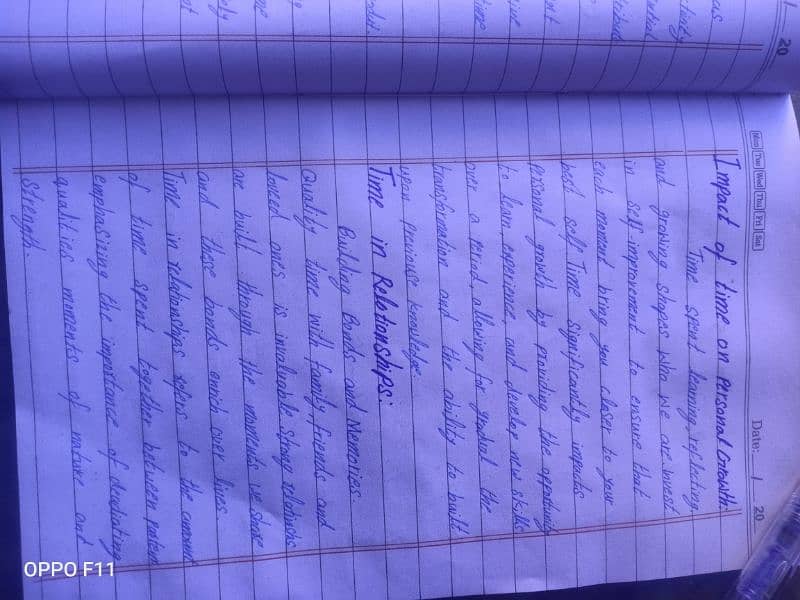 20
as
Mon Tue Wed Thu Fri Sat
Date: / 20
Impact of time on Personal Growth:
Time spent learning, reflecting
and growing shapes who we are. invest
in self-improvement to ensure that
each moment bring you closer to your
best self Time significantly impacts
personal growth by providing the opportunity
to learn, experience, and develop new skills
over a period, allowing for gradual the
transformation and the ability to build
upon previous knowledge.
Time in Relationships:
Building Bonds and Memories.
Quality time with family friends and
loved ones is invaluable strong
are built through the moments we share
and these bonds enrich over lives.
Time in relationships to the amount
of time spent together between
emphasizing the importance of
qualities moments of nature and
Strength.
OPPO F11